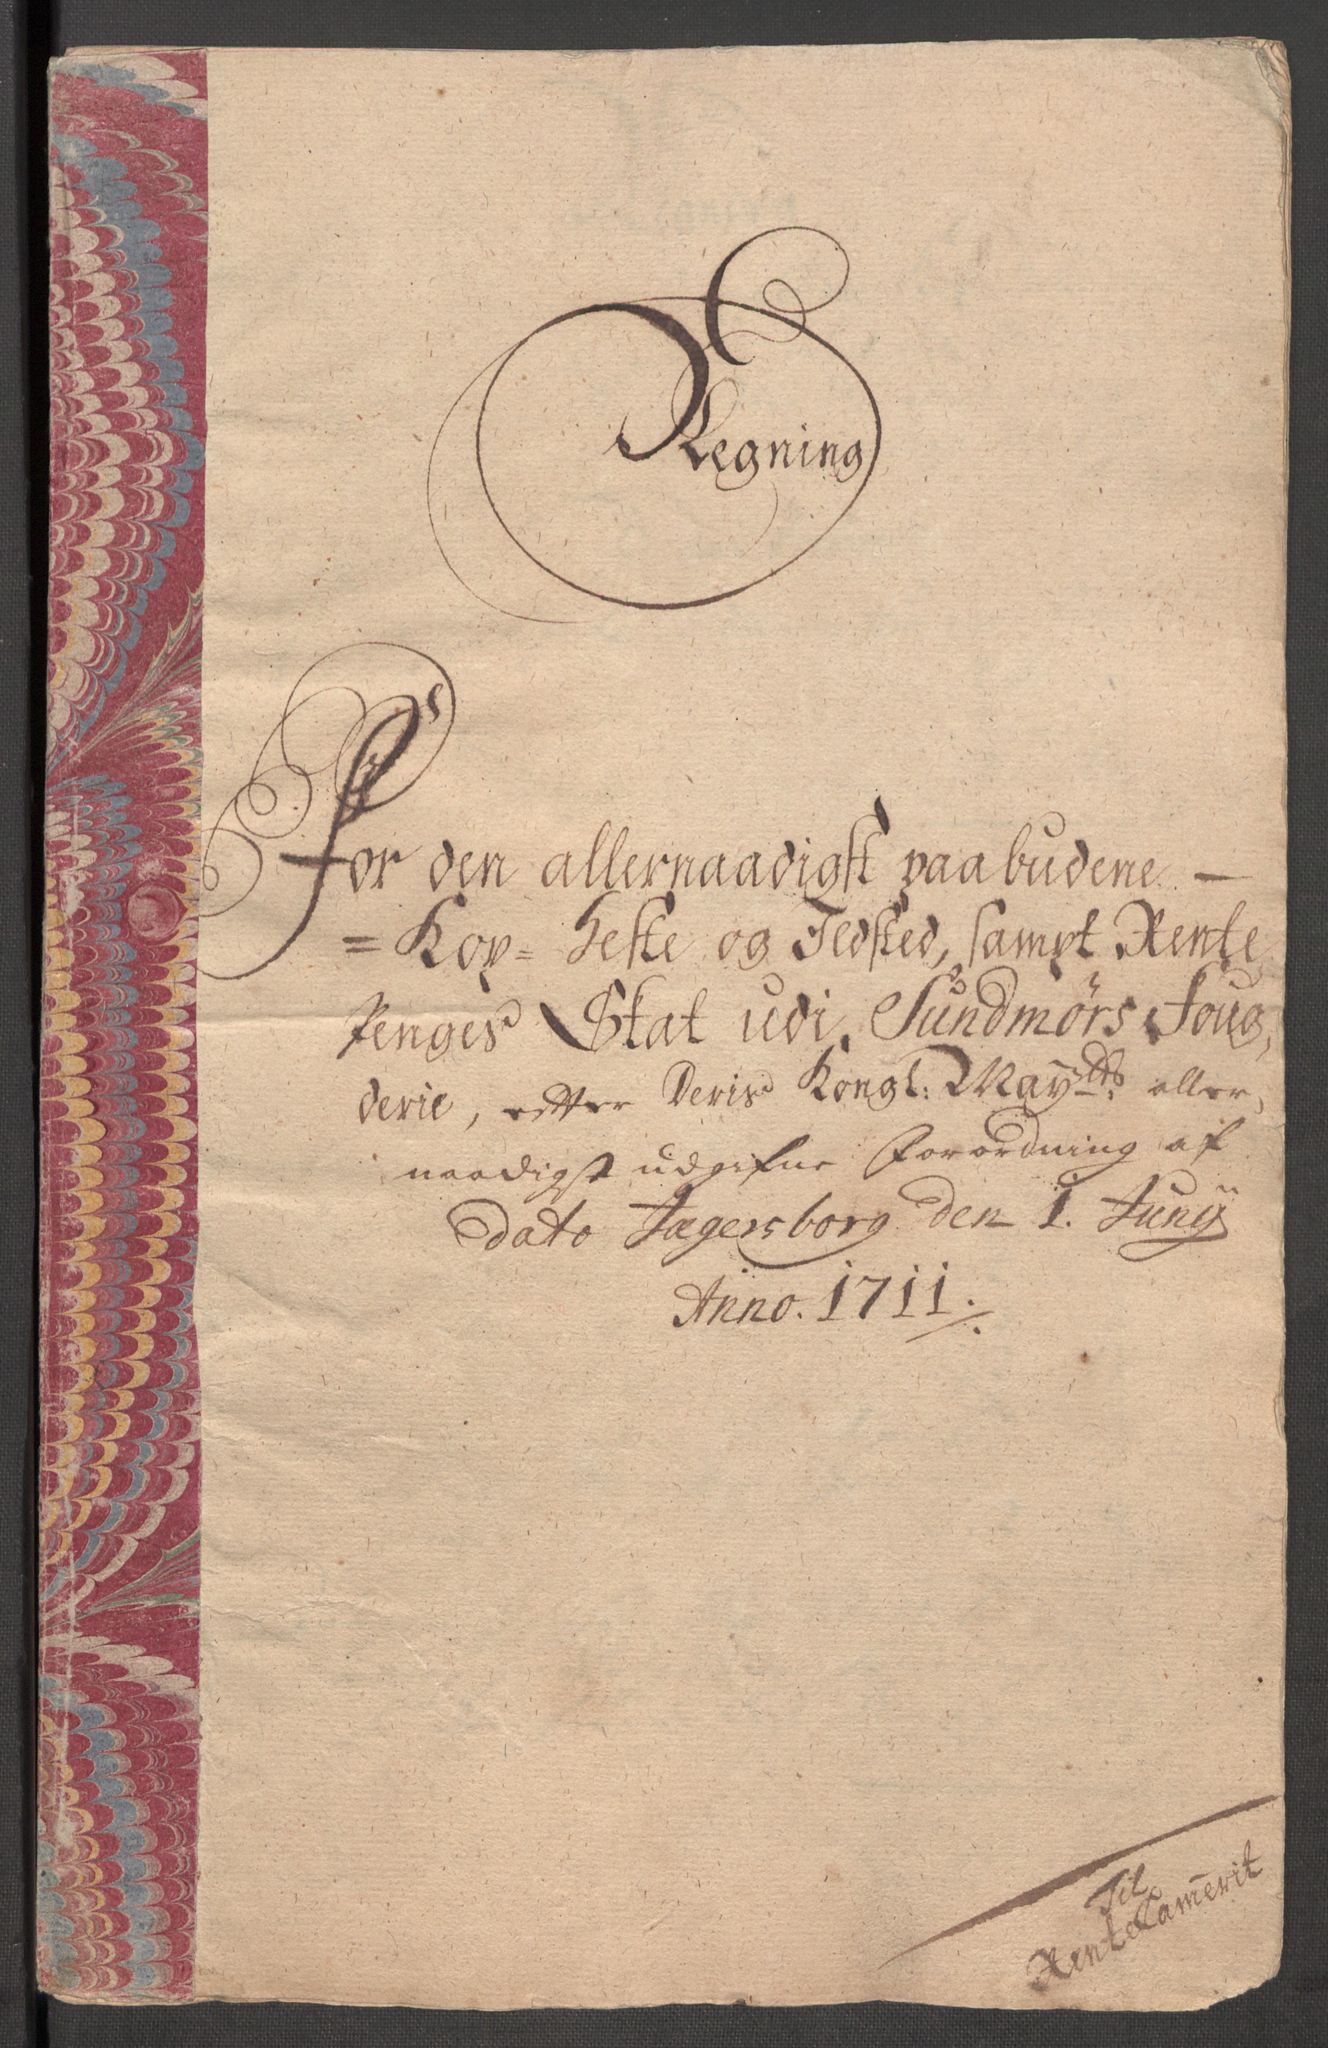 Regning
For den allernaadigst paabudene –
= Kop = Heste og Ildsted, sampt Rente
Penges Skat udi Sundmörs Foug,
derie, efter Deris Kongl: Mayts. aller,
naadigst udgifne Forordning af
Dato Jægersborg den 1. Junÿ
Anno. 1711.
Til
RenteCam̄erit